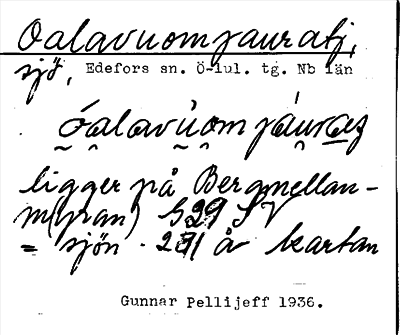 Oalavuomjauratj,
sjö, Edefors sn. Ö-lul. tg. Nb län
óalavu̇om jáuraʒ
ligger på Bergmellan-
m(yran) S 29 SV
= sjön. 271 å kartan
Gunnar Pellijeff 1936.